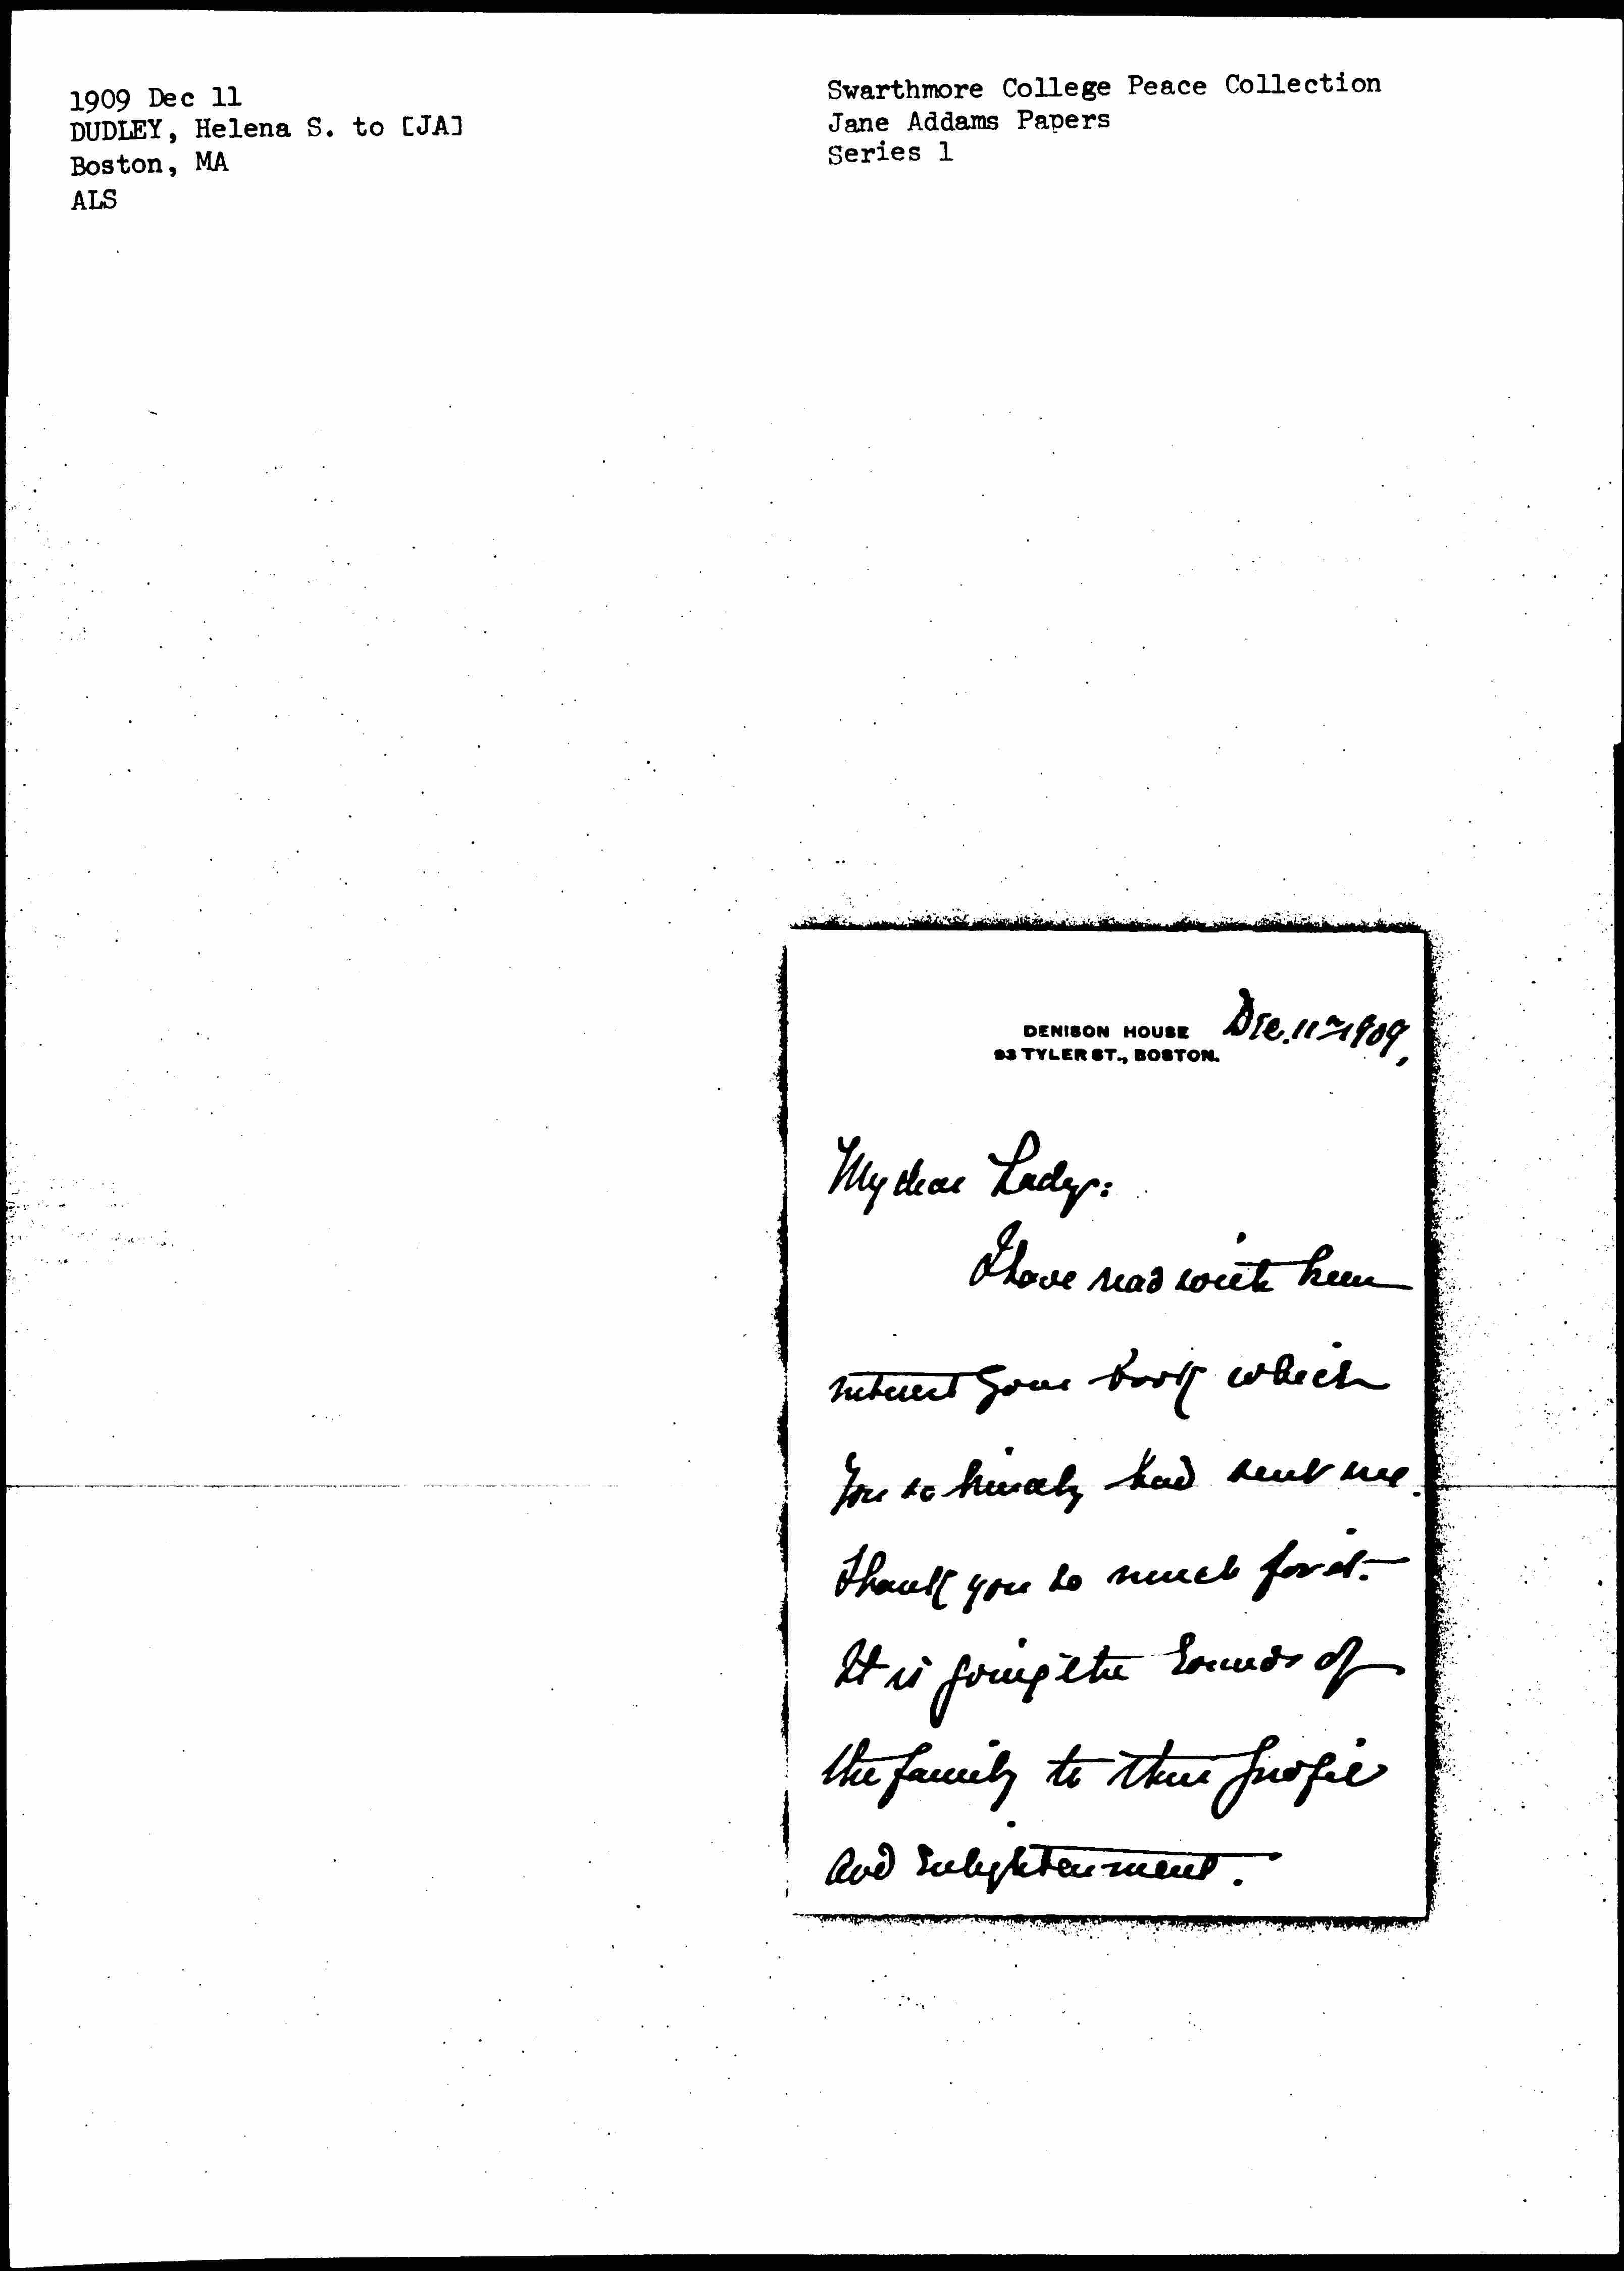 1909 Dec 11
DUDLEY, Helena S. to [JA]
Boston, MA
ALS
Swarthmore College Peace Collection
Jane Addams Papers
Series 1
DENISON HOUSE
93 TYLER ST., BOSTON.
Dec. 11th 1909,
My dear Lady:
I have read with keen
interest your book which
you so kindly had sent me.
Thank you so much for it.
It is going the rounds of
the family to their profit
and enlightenment.